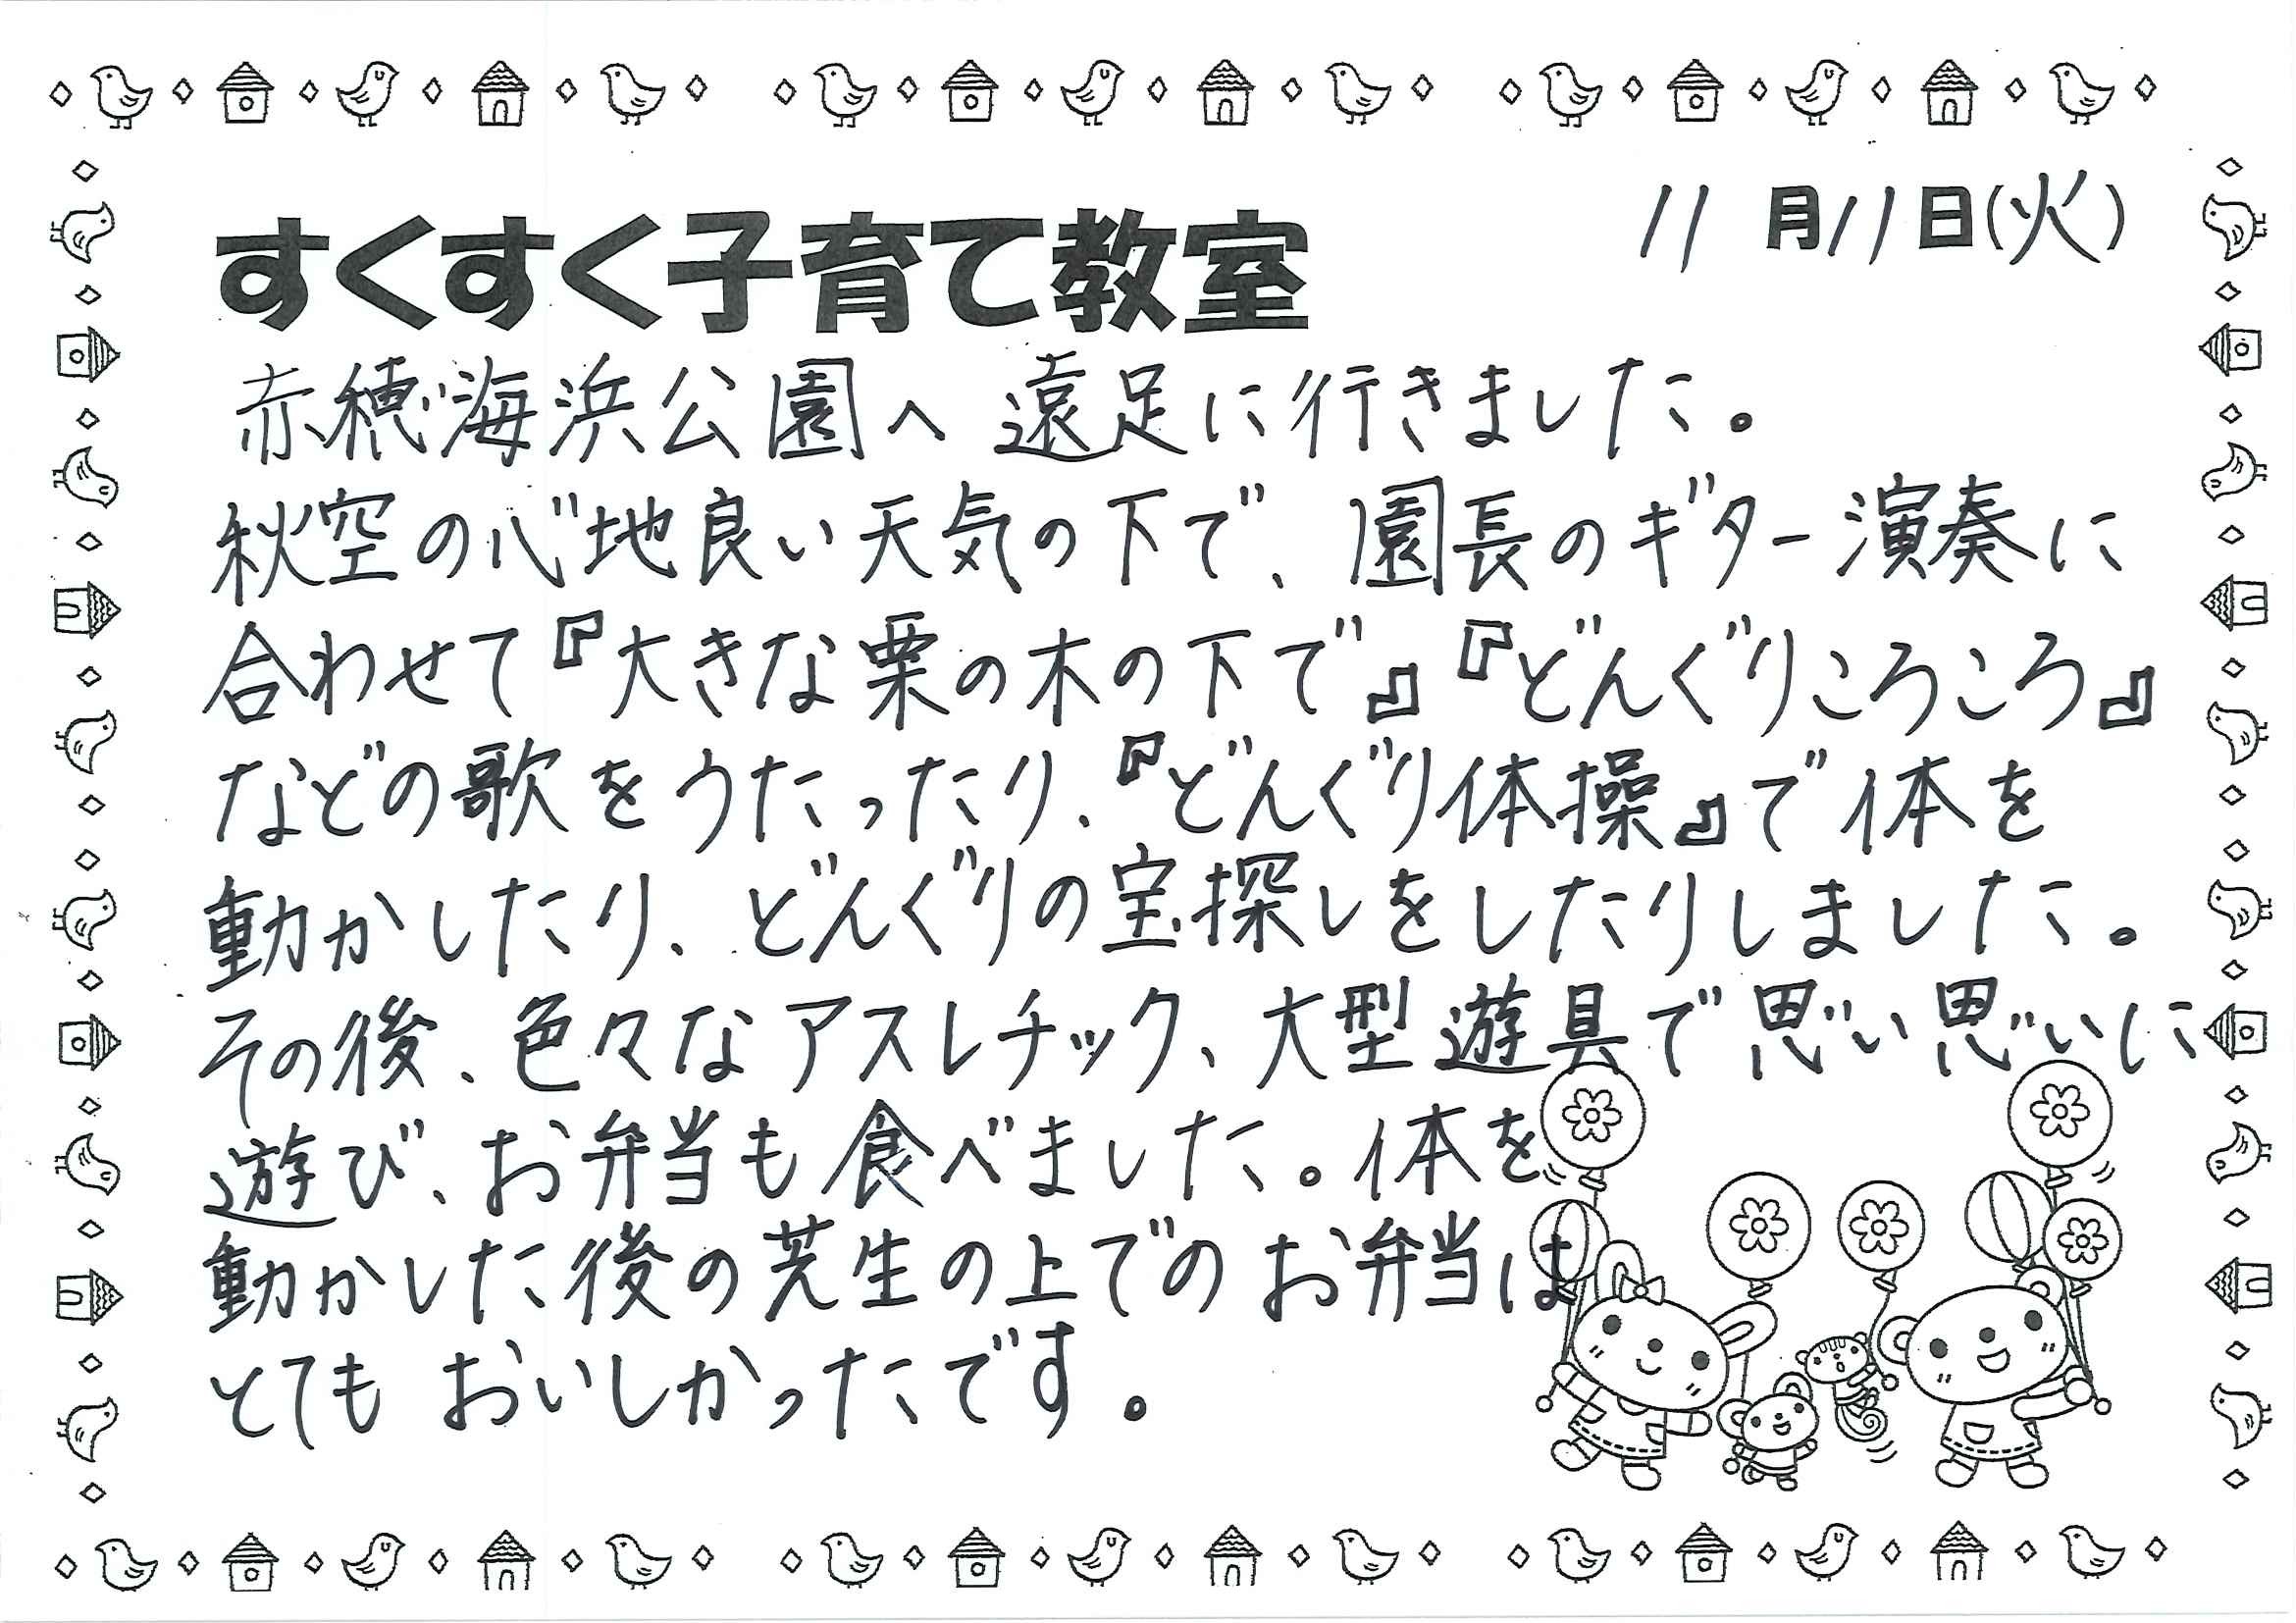 11月11日(火)
すくすく子育て教室
赤穂海浜公園へ遠足に行きました。
秋空の心地良い天気の下で、園長のギター演奏に
合わせて『大きな栗の木の下で』『どんぐりころころ』
などの歌をうたったり、『どんぐり体操』で体を
動かしたり、どんぐりの宝探しをしたりしました。
その後、色々なアスレチック、大型遊具で思い思いに
遊び、お弁当も食べました。体を
動かした後の芝生の上でのお弁当は
とてもおいしかったです。